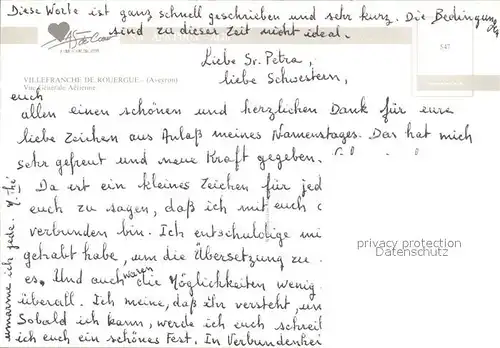 Diese Worte ist ganz schnell geschrieben und sehr kurz. Die Bedingungen
sind zu dieser Zeit nicht ideal.
Liebe Sr. Petra,
liebe Schwestern,
547
VILLEFRANCHE DE ROUERGUE - (Aveyron)
Vue Générale Aérienne
euch
allen einen schönen und herzlichen Dank für eure
liebe Zeichen aus Anlaß meines Namenstages. Das hat mich
sehr gefreut und neue Kraft gegeben.
Da ist ein kleines Zeichen für jed
euch zu sagen, daß ich mit euch
verbunden bin. Ich entschuldige mi
gehabt habe, um die Übersetzung zu
es. Und auch waren die Möglichkeiten wenig
überall. Ich meine, daß ihr versteht, un
Sobald ich kann, werde ich euch schreib
ich euch ein schönes Fest. In Verbundenhei
umarme ich jede.
privacy protection
Datenschutz